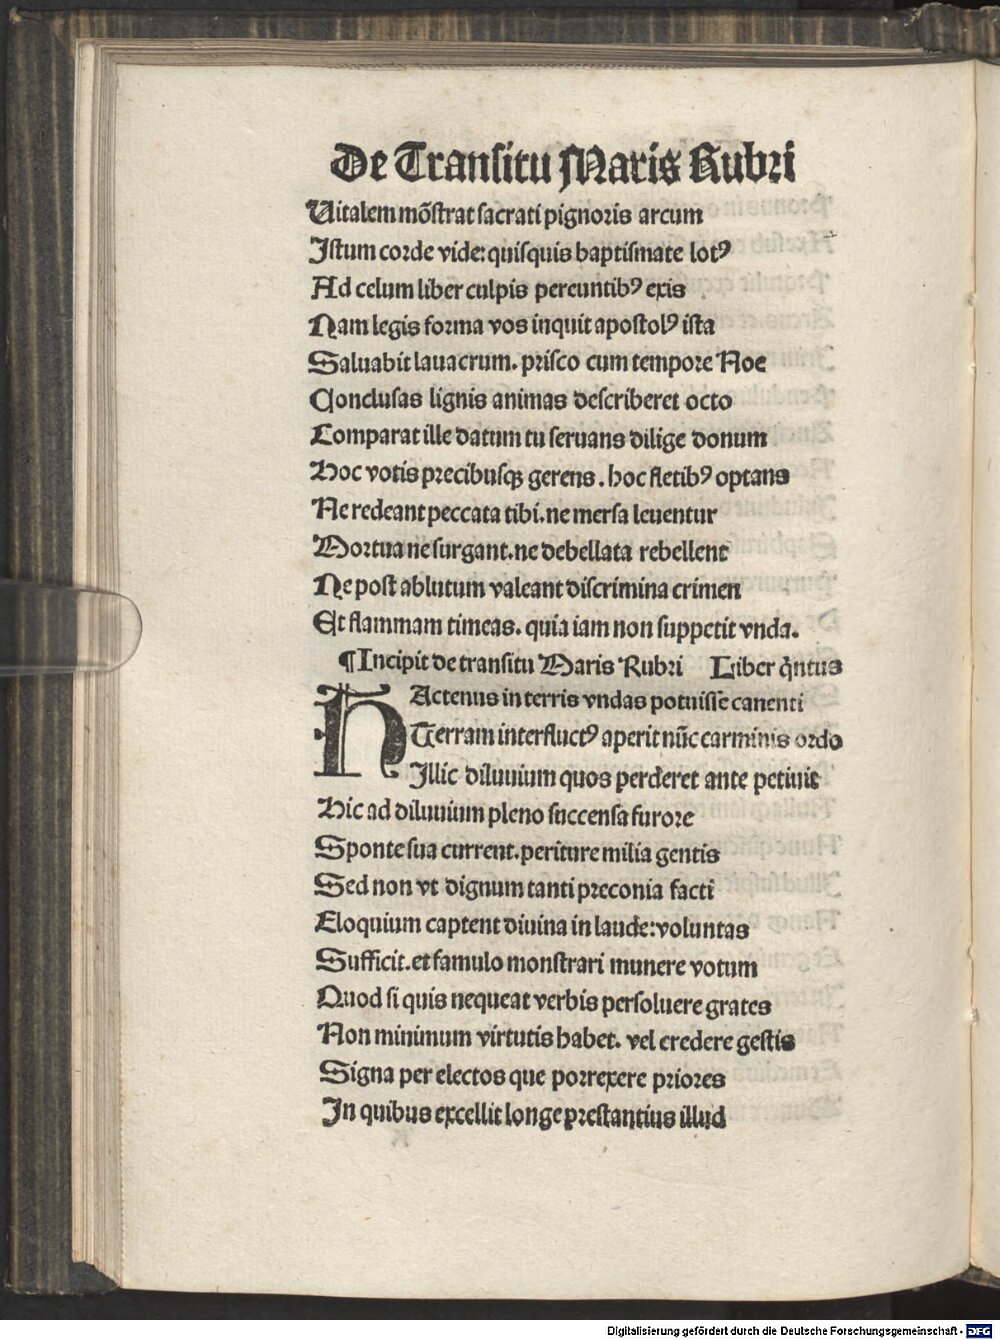 De Transitu Maris Rubri
Uitalem mõstrat sacrati pignoris arcum
Istum corde vide: quisquis baptismate lotꝰ
Ad celum liber culpis pereuntibꝰ exis
Nam legis forma vos inquit apostolꝰ ista
Saluabit lauacrum. prisco cum tempore Noe
Conclusas lignis animas describeret octo
Comparat ille datum tu seruans dilige donum
Hoc votis precibusqꝫ gerens. hoc fletibꝰ optans
Ne redeant peccata tibi. ne mersa leuentur
Mortua ne surgant. ne debellata rebellent
Ne post ablutum valeant discrimina crimen
Et flammam timeas. quia iam non suppetit vnda.
¶Incipit de transitu Maris Rubri Liber q̃ntus
HActenus in terris vndas potuisse canenti
Terram interfluctꝰ aperit nũc carminis ordo
Illic diluuium quos perderet ante petiuit
Hic ad diluuium pleno succensa furore
Sponte sua current. periture milia gentis
Sed non vt dignum tanti preconia facti
Eloquium captent diuina in laude: voluntas
Sufficit. et famulo monstrari munere votum
Quod si quis nequeat verbis persoluere grates
Non minimum virtutis habet. vel credere gestis
Signa per electos que porrexere priores
In quibus excellit longe prestantius illud
Digitalisierung gefördert durch die Deutsche Forschungsgemeinschaft - DFG